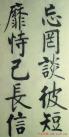 忘罔談彼短
靡恃己長信